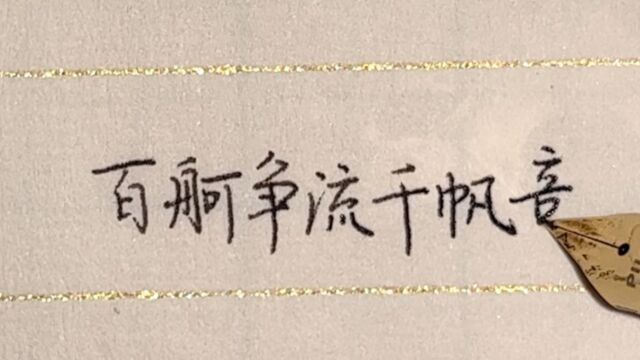 百舸争流千帆